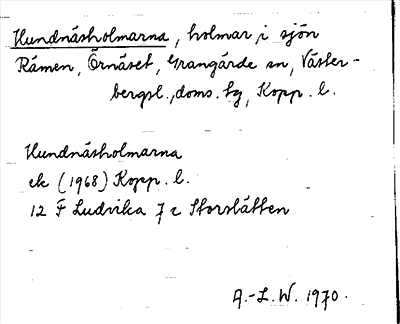 Hundnäsholmarna, holmar i sjön
Råmen, Örnäset, Grangärde sn, Väster-
bergsl. doms. tg, Kopp. l.
Hundnäsholmarna
ek (1968) Kopp. l.
12 F Ludvika 7 c Storslätten
A.-L. W. 1970.